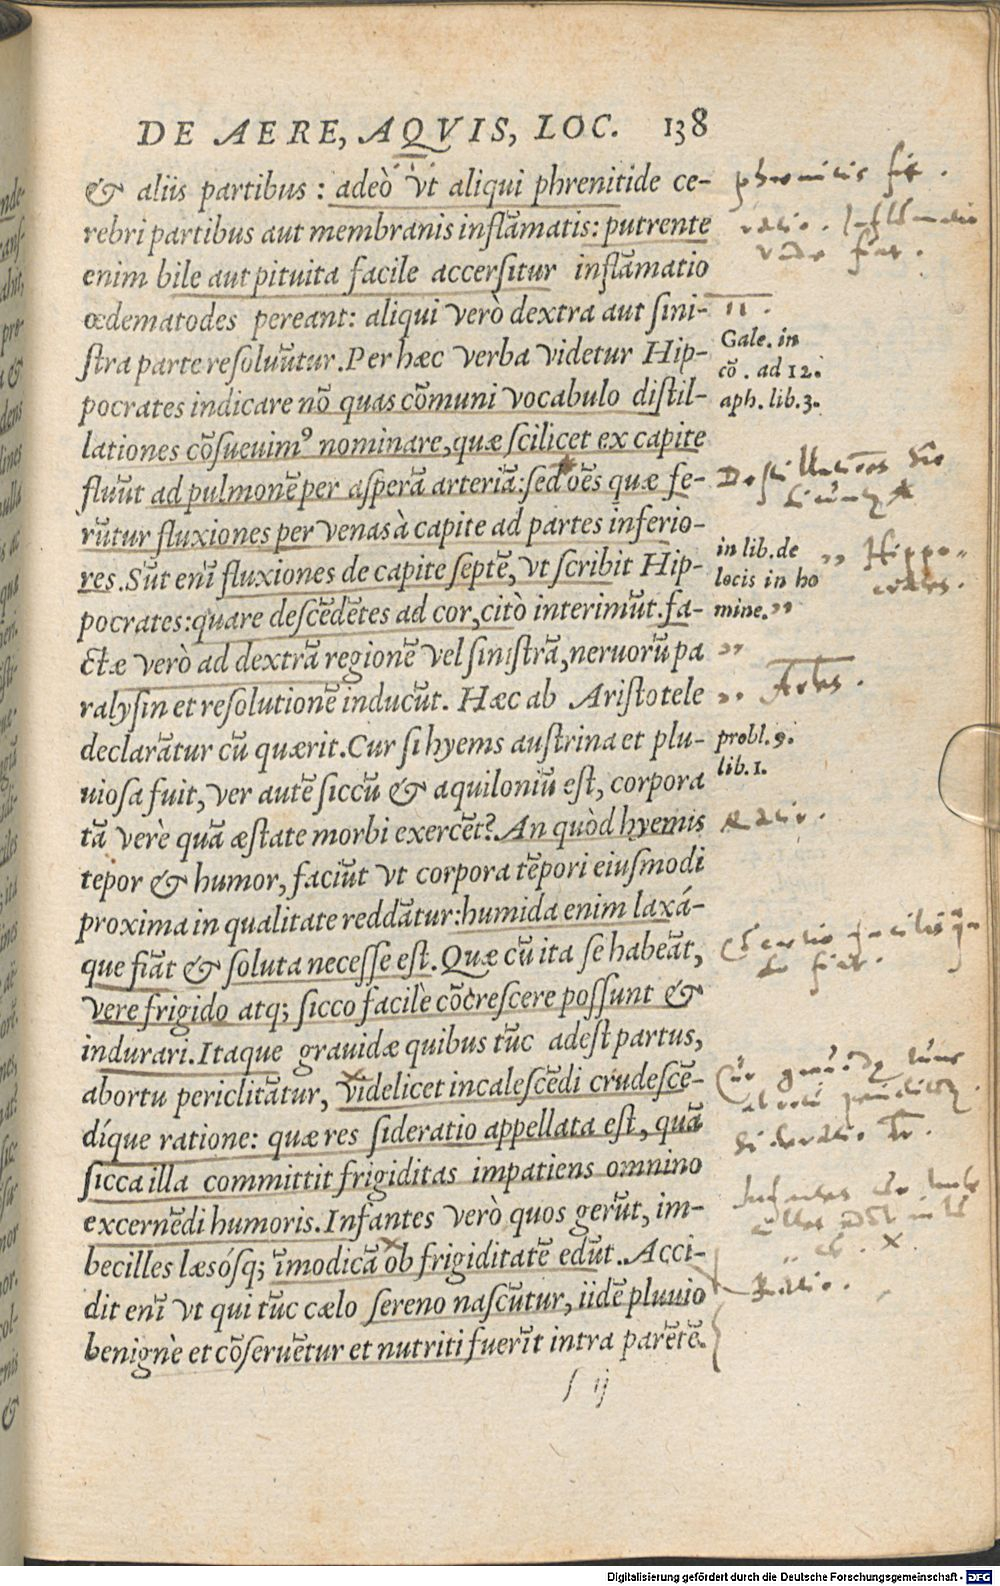 DE AERE, AQVIS, LOC. 138
& aliis partibus : adeò vt aliqui phrenitide ce-
rebri partibus aut membranis inflãmatis: putrente
enim bile aut pituita facile accersitur inflãmatio
œdematodes pereant: aliqui verò dextra aut sini-
stra parte resoluũtur. Per hæc verba videtur Hip-
pocrates indicare nõ quas cõmuni vocabulo distil-
lationes cõsueuimꝰ nominare, quæ scilicet ex capite
fluũt ad pulmonẽ per asperã arteriã: sed oẽs quæ fe-
rũtur fluxiones per venas à capite ad partes inferio-
res. Sũt enĩ fluxiones de capite septẽ, vt scribit Hip-
pocrates: quare descẽdẽtes ad cor, citò interimũt. fa-
ctæ verò ad dextrã regionẽ vel sinistrã, neruorũ pa
ralysin et resolutionẽ inducũt. Hæc ab Aristotele
declarãtur cũ quærit. Cur si hyems austrina et plu-
uiosa fuit, ver autẽ siccũ & aquiloniũ est, corpora
tã verè quã æstate morbi exercẽt? An quòd hyemis
tepor & humor, faciũt vt corpora tẽpori eiusmodi
proxima in qualitate reddãtur: humida enim laxá-
que fiãt & soluta necesse est. Quæ cũ ita se habeãt,
vere frigido atq; sicco facilè cõcrescere possunt &
indurari. Itaque grauidæ quibus tũc adest partus,
abortu periclitãtur, videlicet incalescẽdi crudescẽ-
díque ratione: quæ res sideratio appellata est, quã
sicca illa committit frigiditas impatiens omnino
excernẽdi humoris. Infantes verò quos gerũt, im-
becilles læsósq; ĩmodicã ob frigiditatẽ edũt. Acci-
dit enĩ vt qui tũc cælo sereno nascũtur, iidẽ pluuio
benignè et cõseruẽtur et nutriti fuerĩt intra parẽtẽ.
s ij
phrenitis fit .
ratio . Inflãmatio
vnde fiat .
11 .
Gale. in
cõ . ad 12.
aph. lib. 3.
Destillationes
in lib. de
locis in ho
mine. ,,
,, Hippo-
crates.
,,
,, Arles .
probl. 9.
lib. 1.
Ratio .
fiat .
Cur
Sideratio
Infantes
X .
Ratio .
Digitalisierung gefördert durch die Deutsche Forschungsgemeinschaft - DFG